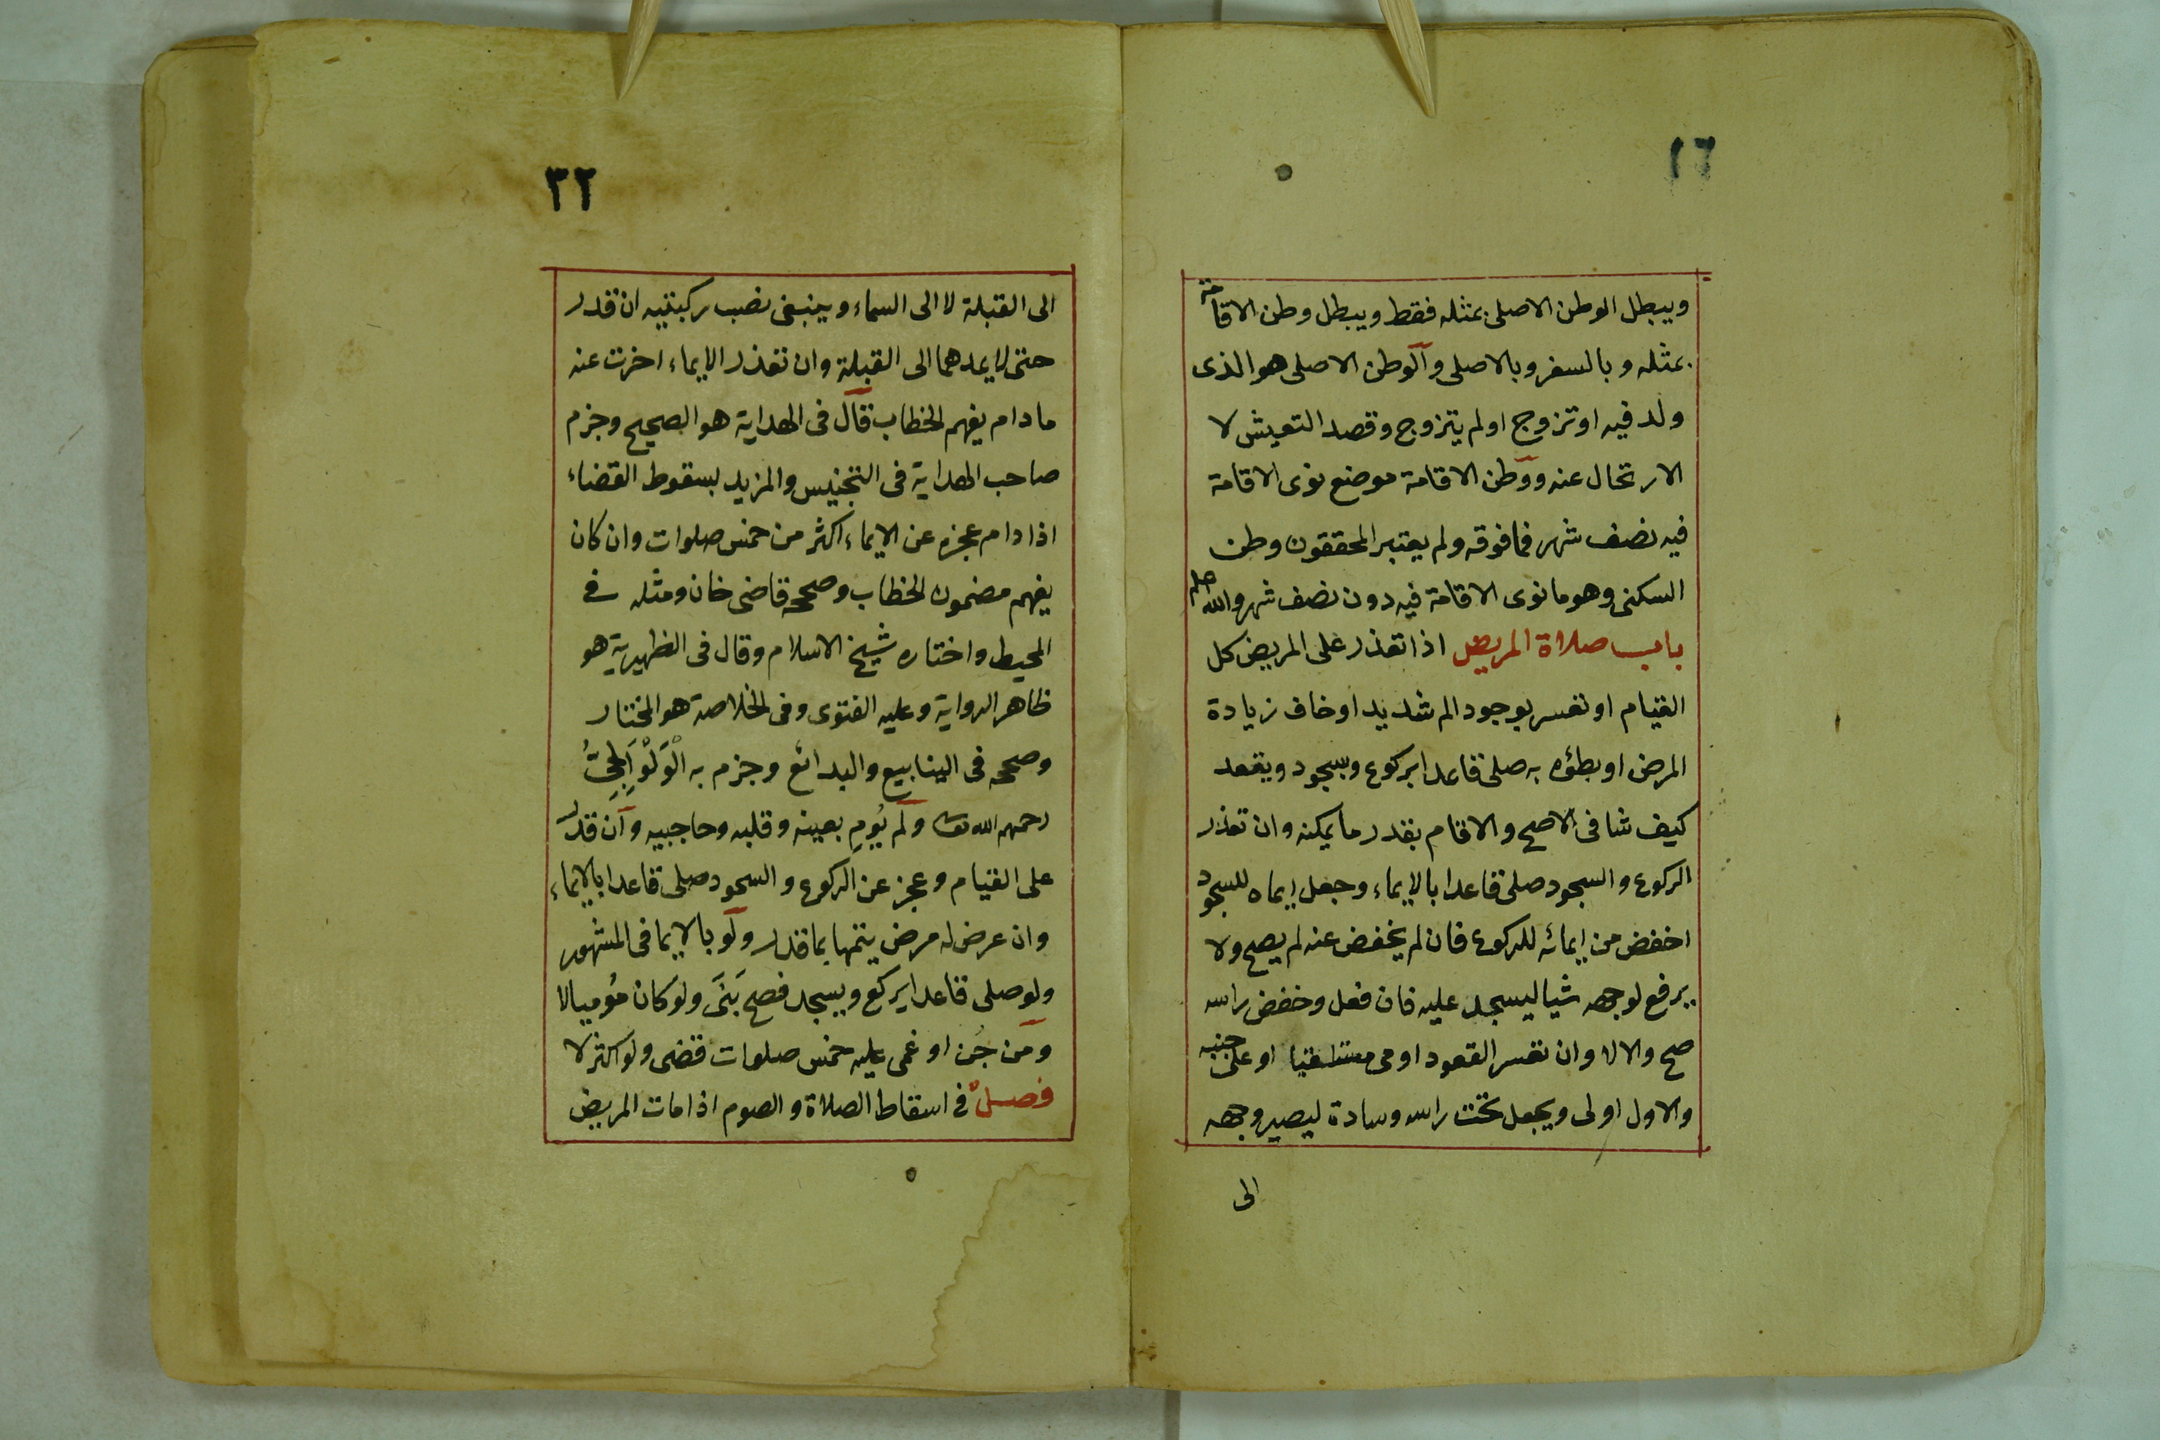 ١٦
ويبطل الوطن الاصلى بمثله فقط ويبطل وطن الاقامة
بمثله وبالسفر وبالاصلى والوطن الاصلى هو الذى
ولد فيه او تزوج او لم يتزوج وقصد التعيش لا
الارتحال عنه ووطن الاقامة موضع نوى الاقامة
فيه نصف شهر فما فوقه ولم يعتبر المحققون وطن
السكنى وهو ما نوى الاقامة فيه دون نصف شهر والله اعلم
باب صلاة المريض اذا تعذر على المريض كل
القيام او تعسر بوجود الم شديد او خاف زيادة
المرض او بطؤه به صلى قاعدا بركوع وسجود ويقعد
كيف شا فى الاصح والا قام بقدر ما يمكنه وان تعذر
الركوع والسجود صلى قاعدا بالايماء وجعل ايماه للسجود
اخفض من ايمائه للركوع فان لم يخفض عنه لم يصح ولا
يرفع لوجهه شيا ليسجد عليه فان فعل وخفض راسه
صح والا لا وان تعسر القعود اومى مستلقيا او على جنبه
والاول اولى ويجعل تحت راسه وسادة ليصير وجهه
الى
٣٢
الى القبلة لا الى السماء وينبغى نصب ركبتيه ان قدر
حتى لا يمدهما الى القبلة وان تعذر الايماء اخرت عنه
ما دام يفهم الخطاب قال فى الهداية هو الصحيح وجزم
صاحب الهداية فى التجنيس والمزيد بسقوط القضاء
اذا دام عجزه عن الايماء اكثر من خمس صلوات وان كان
يفهم مضمون الخطاب وصححه قاضى خان ومثله فى
المحيط واختاره شيخ الاسلام وقال فى الظهيرية هو
ظاهر الرواية وعليه الفتوى وفى الخلاصة هو المختار
وصححه فى الينابيع والبدائع وجزم به الْوَلْوَالِجِىُّ
رحمهم الله تعالى ولم يُومِ بعينه وقلبه وحاجبيه وان قدر
على القيام وعجز عن الركوع والسجود صلى قاعدا بالايماء
وان عرض له مرض يتمها بما قدر ولو بالايما فى المشهور
ولو صلى قاعدا يركع ويسجد فصح بَنَى ولو كان مُوميا لا
ومن جُن او غمى عليه خمس صلوات قضى ولو اكثر لا
فصلٌ فى اسقاط الصلاة والصوم اذا مات المريض